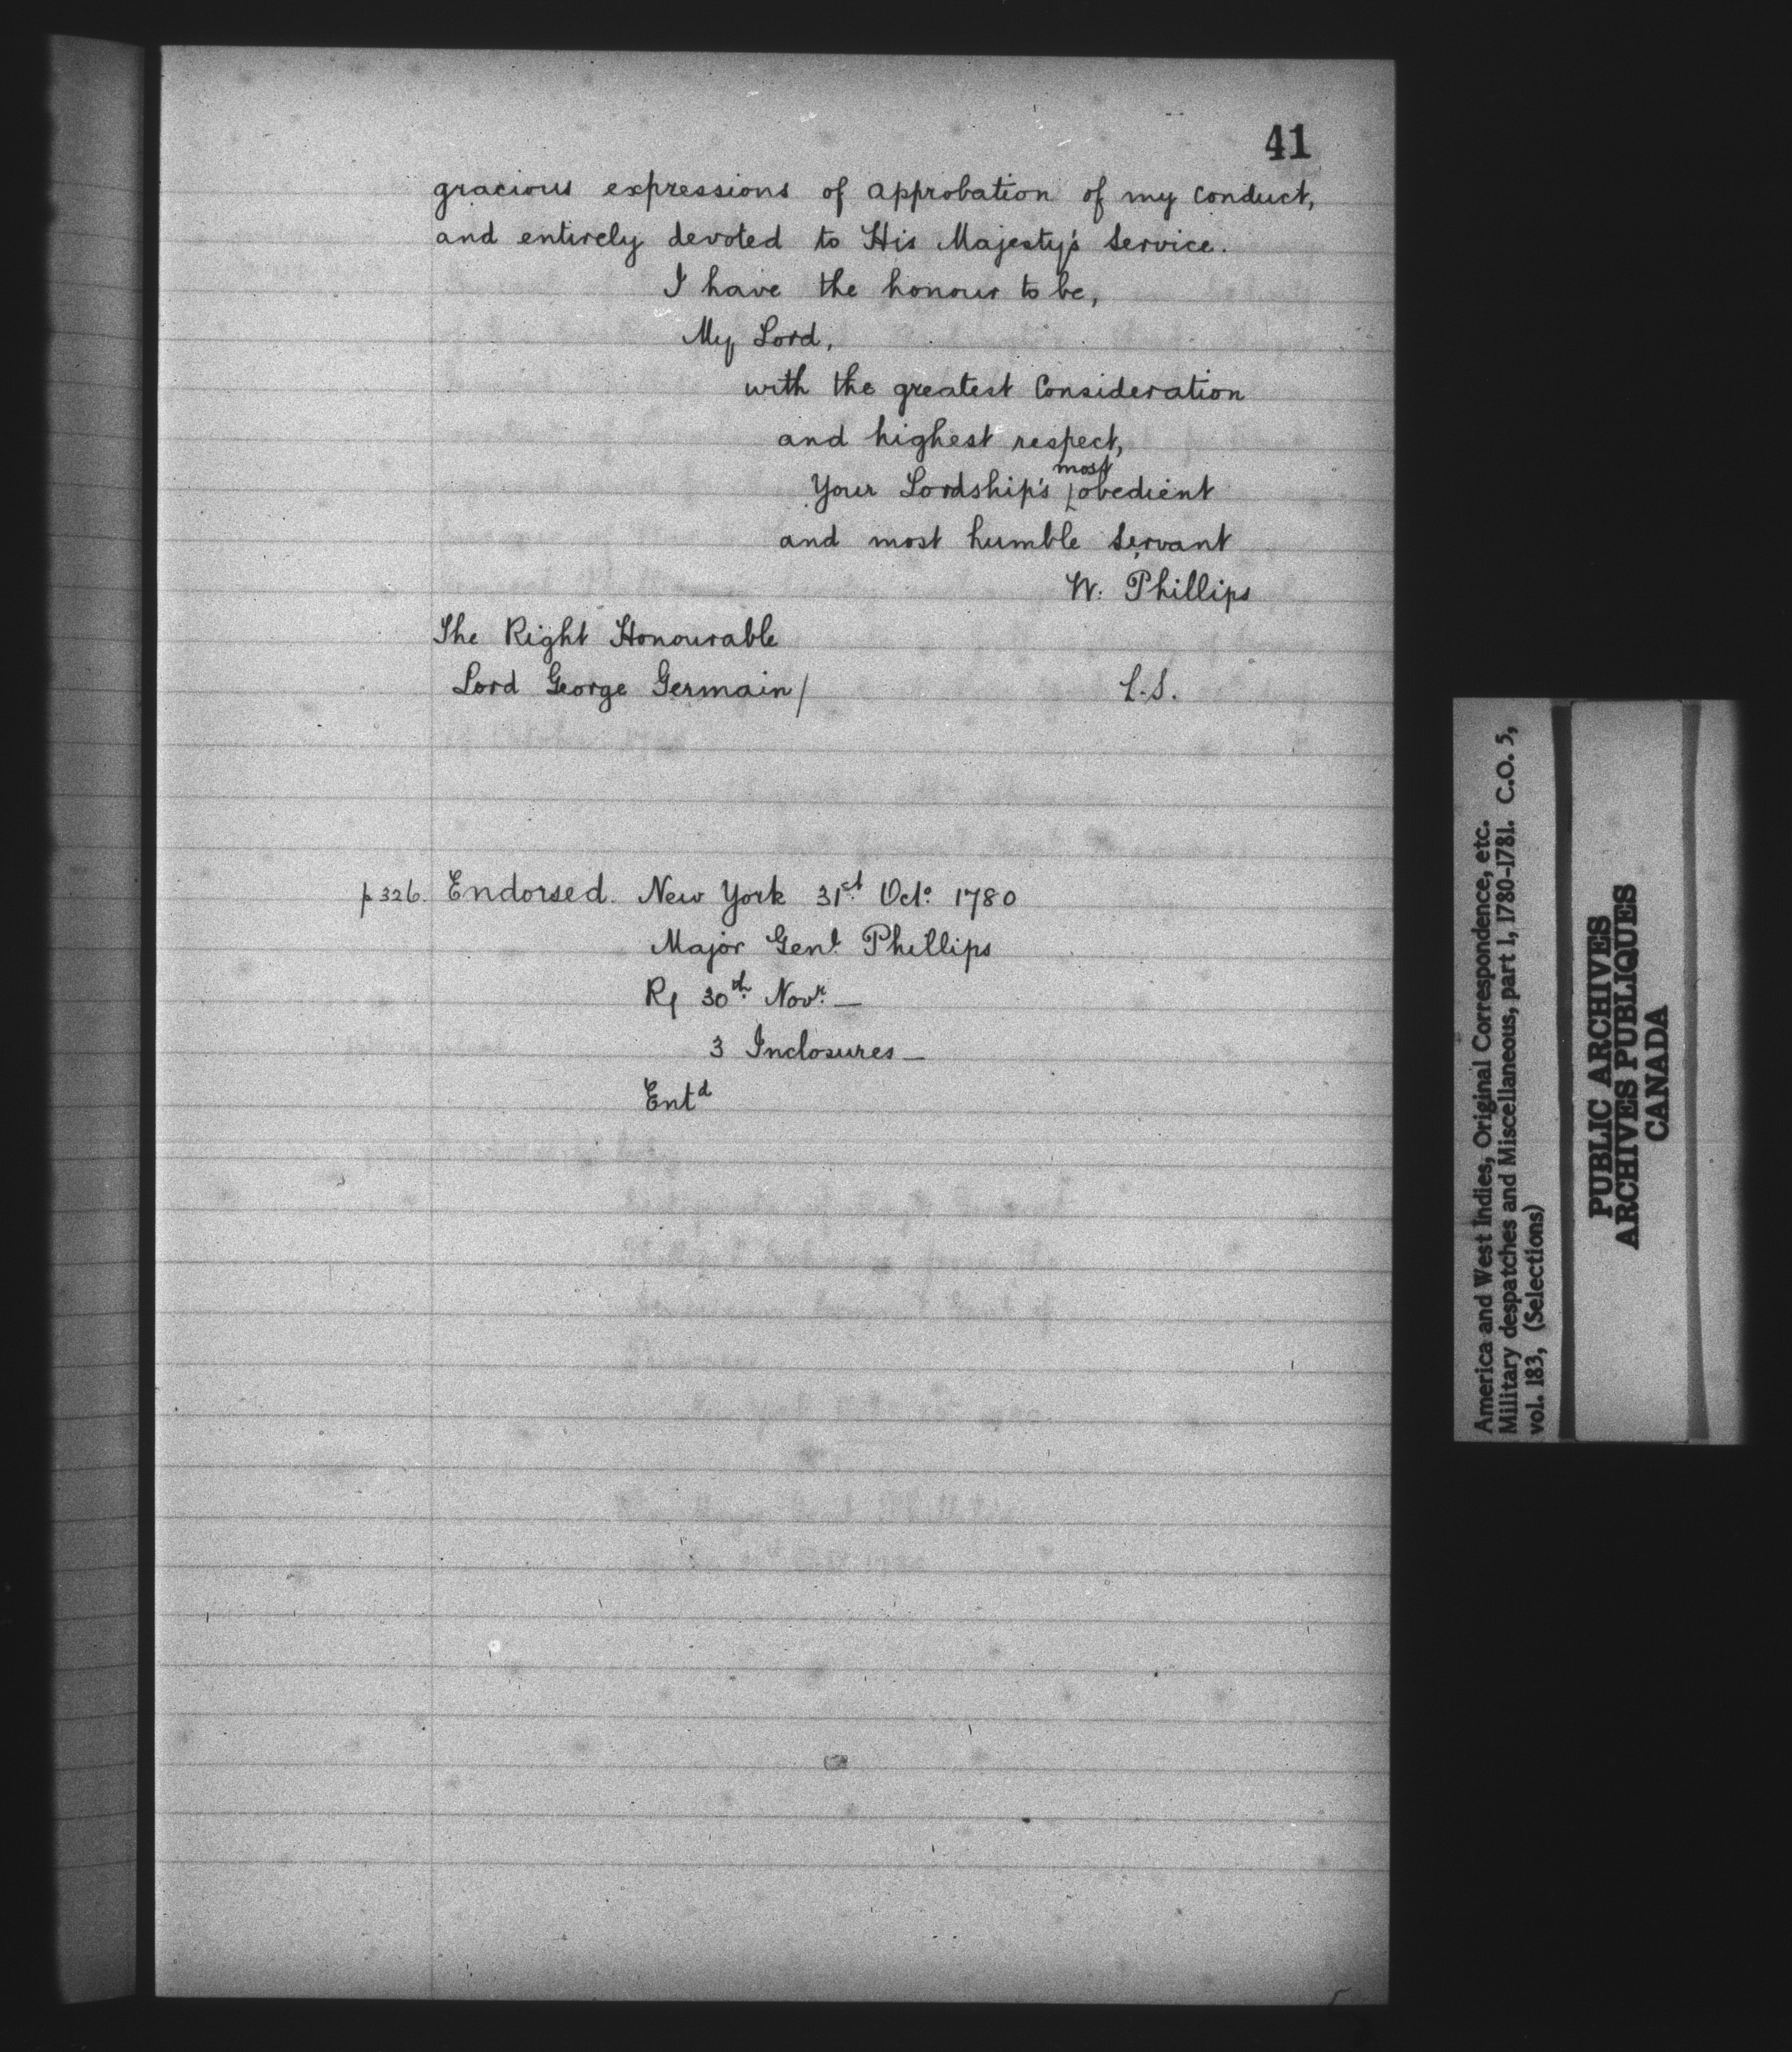 41
gracious expressions of approbation of my conduct,
and entirely devoted to His Majesty's Service.
I have the honour to be,
My Lord,
with the greatest Consideration
and highest respect,
most
Your Lordship's obedient
and most humble Servant
W. Phillips
The Right Honourable
Lord George Germain/
L.S.
p 326. Endorsed. New York 31st Octo. 1780
Major Genl. Phillips
R/ 30th Novr. —
3 Inclosures —
Entd
America and West Indies, Original Correspondence, etc.
Military despatches and Miscellaneous, part 1, 1780-1781. C.O. 5,
vol. 183, (Selections)
PUBLIC ARCHIVES
ARCHIVES PUBLIQUES
CANADA